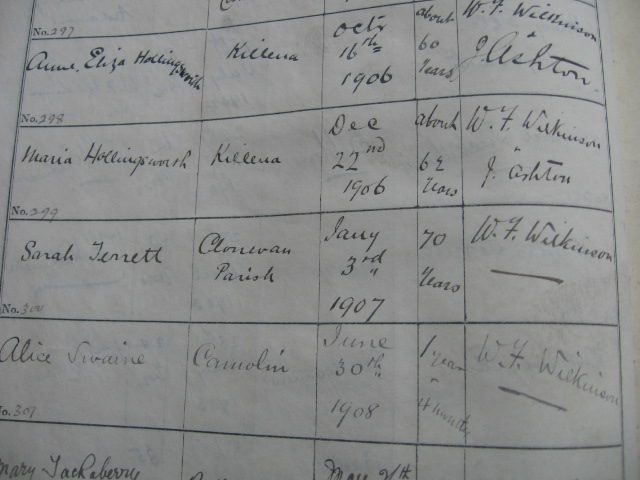 W. F. Wilkinson
No. 297
Anne, Eliza Hollingsworth
Killena
Octr
16th
1906
about
60
Years
&
J. Ashton
No. 298
Maria Hollingsworth
Killena
Dec
22nd
1906
about
62
Years
W. F. Wilkinson
"
J. Ashton
No. 299
Sarah Terrett
Clonevan
Parish
Jany
3rd
1907
70
Years
W. F. Wilkinson
No. 300
Alice Swaine
Camolin
June
30th
1908
1 year
"
W. F. Wilkinson
No. 301
Mary Tackaberry
May